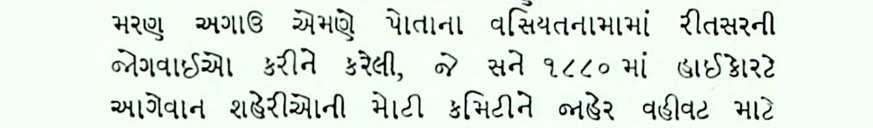 મરણ અગાઉ એમણે પોતાના વસિયતનામામાં રીતસરની
જોગવાઈઓ કરીને કરેલી, જે સને ૧૮૮૦ માં હાઈકોરટે
આગેવાન શહેરીઓની મોટી કમિટીને જાહેર વહીવટ માટે